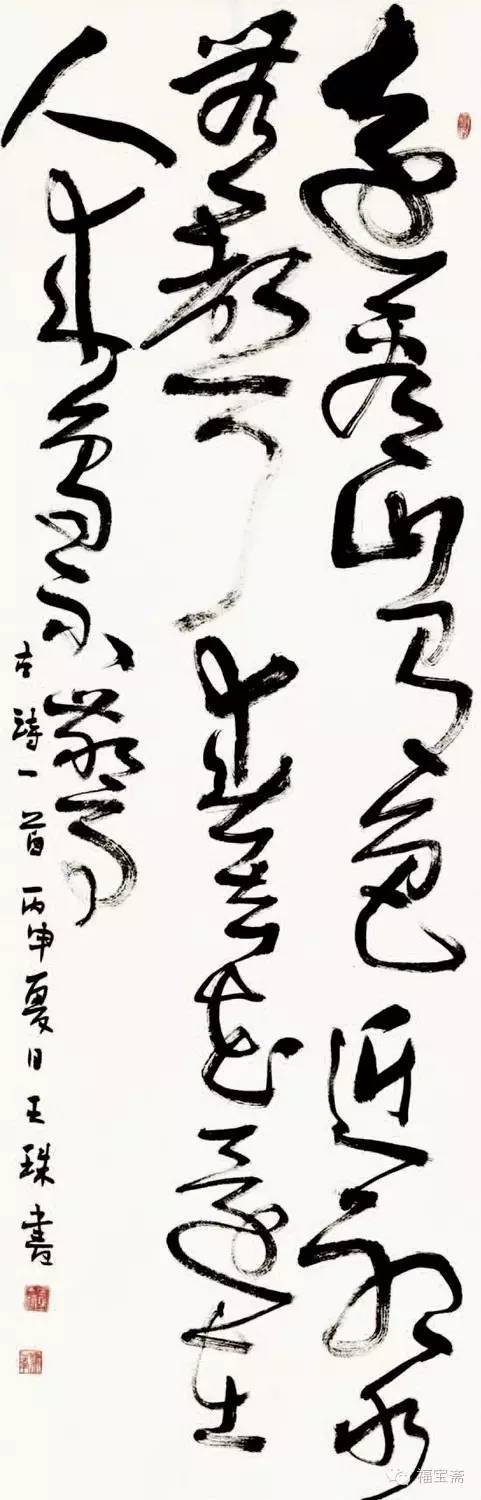 遠看山有色近聽水
無聲春去花還在
人來鳥不驚
古詩一首丙申夏日王珠書
福宝斋